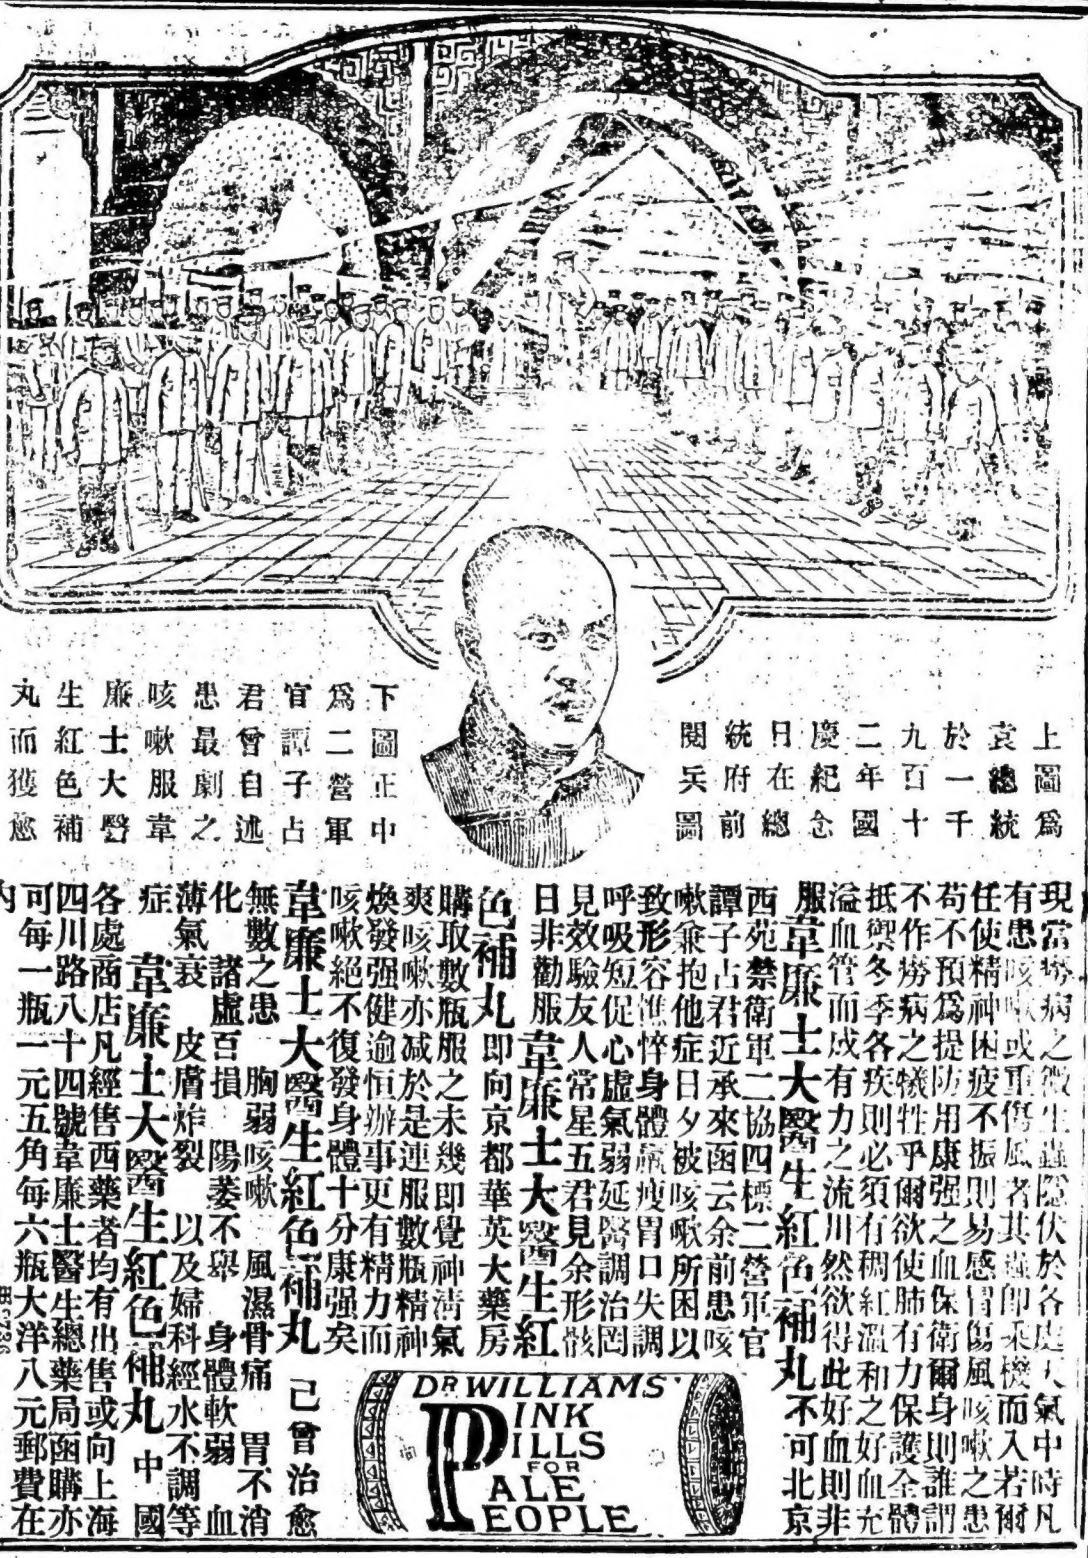 上圖爲
袁總統
於一千
九百十
二年國
慶紀念
日在總
統府前
閱兵圖
下圖正中
爲二營軍
官譚子占
君曾自述
患最劇之
咳嗽服韋
廉士大醫
生紅色補
丸而獲愈
現當癆病之微生蟲隱伏於各處天氣中時凡
有患咳嗽或重傷風者其蟲卽乘機而入若爾
任使精神困疲不振則易感冒傷風咳嗽之患
苟不預爲提防用康强之血保衛爾身則誰謂
不作癆病之犧牲乎爾欲使肺有力保護全體
抵禦冬季各疾則必須有稠紅溫和之好血充
溢血管而成有力之流川然欲得此好血則非
服韋廉士大醫生紅色補丸不可北京
西苑禁衛軍二協四標二營軍官
譚子占君近承來函云余前患咳
嗽兼抱他症日夕被咳嗽所困以
致形容憔悴身體羸瘦胃口失調
呼吸短促心虛氣弱延醫調治罔
見效驗友人常星五君見余形骸
日非勸服韋廉士大醫生紅
色補丸即向京都華英大藥房
購取數瓶服之未幾即覺神淸氣
爽咳嗽亦減於是連服數瓶精神
煥發强健逾恒辦事更有精力而
咳嗽絕不復發身體十分康强矣
韋廉士大醫生紅色補丸 已曾治愈
無數之患 胸弱咳嗽 風濕骨痛 胃不消
化 諸虛百損 陽萎不舉 身體軟弱 血
薄氣衰 皮膚炸裂 以及婦科經水不調等
症 韋廉士大醫生紅色補丸 中國
各處商店凡經售西藥者均有出售或向上海
四川路八十四號韋廉士醫生總藥局函購亦
可每一瓶一元五角每六瓶大洋八元郵費在
內
DR WILLIAMS'
PINK
PILLS
FOR
PALE
PEOPLE